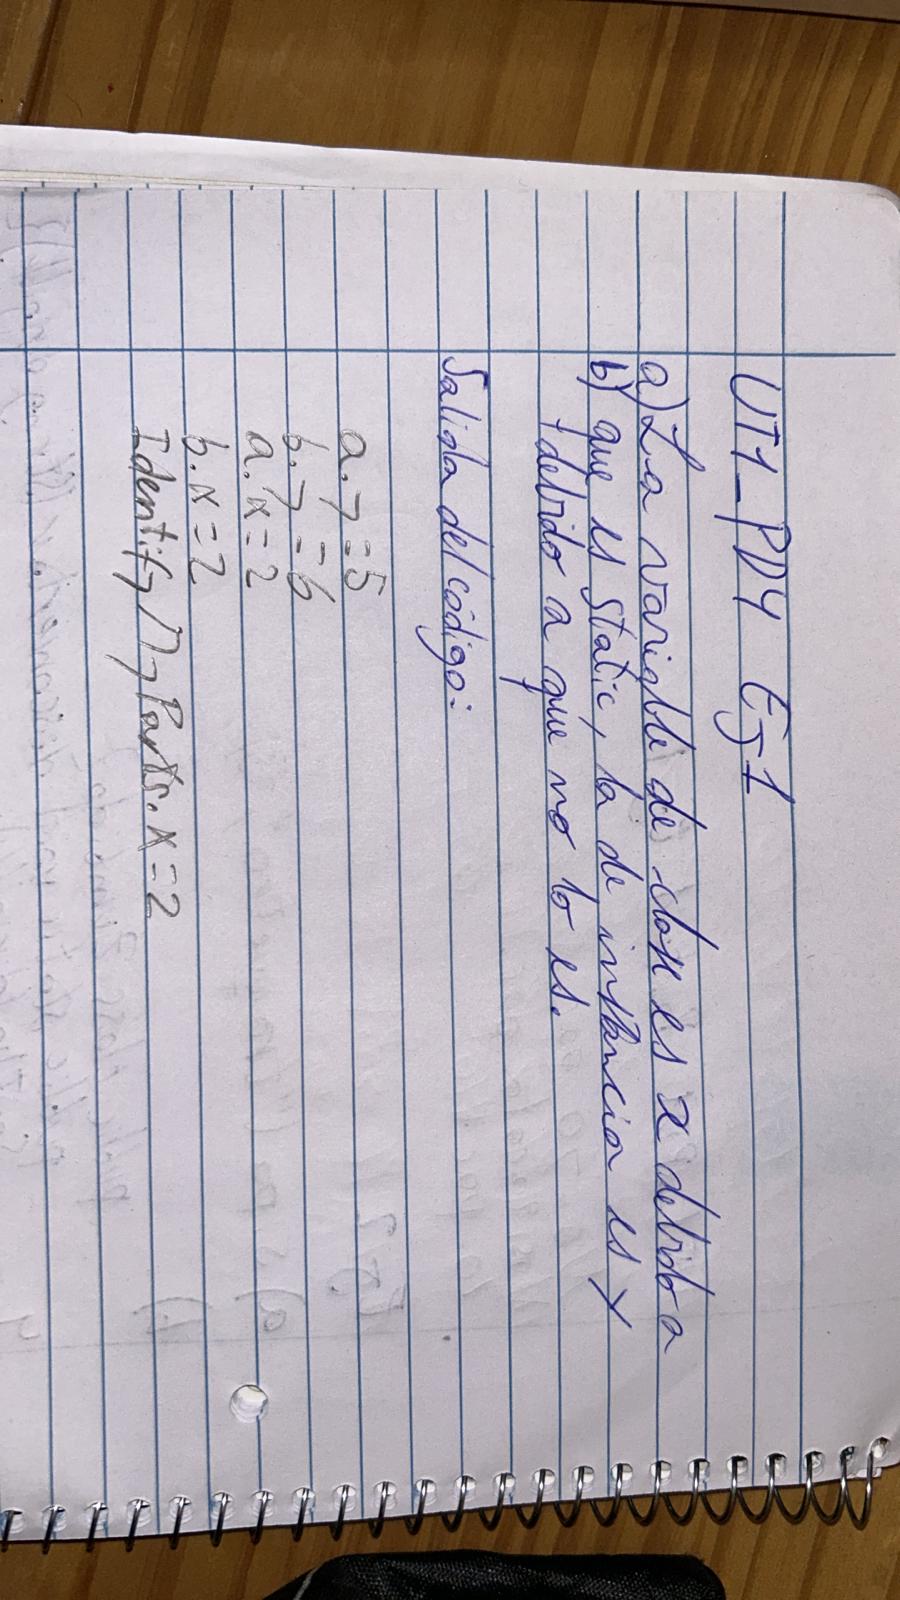 UT1_PD4 Ej1
a) La variable de clase es x debido a
b) que es static, la de instancia es y
debido a que no lo es.
Salida del código:
a.y = 5
b.y = 6
a.x = 2
b.x = 2
IdentifyMyParts.x = 2